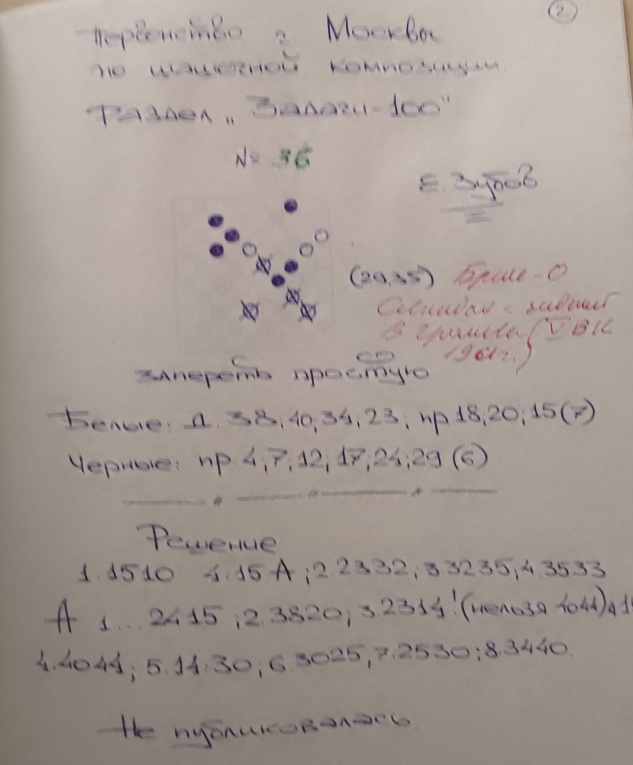 2
Первенство г. Москвы
по шашечной композиции.
Раздел „Задачи-100"
№ 36
Е. Зубов
(29,35) Брие-0
В. Громова (V ВК
1961г.)
запереть простую
Белые: Д. 38,40,34,23; пр 18,20,15(7)
Черные: пр 4,7,12,17,24,29 (6)
Решение
1.1510 4.15 А; 2 2332; 3 3235; 4.3533
А 1... 2415; 2.3820; 3.2314! (нельзя 4044)
4.4044; 5.14:30; 6 3025; 7.2530; 8.3440.
Не публиковалась